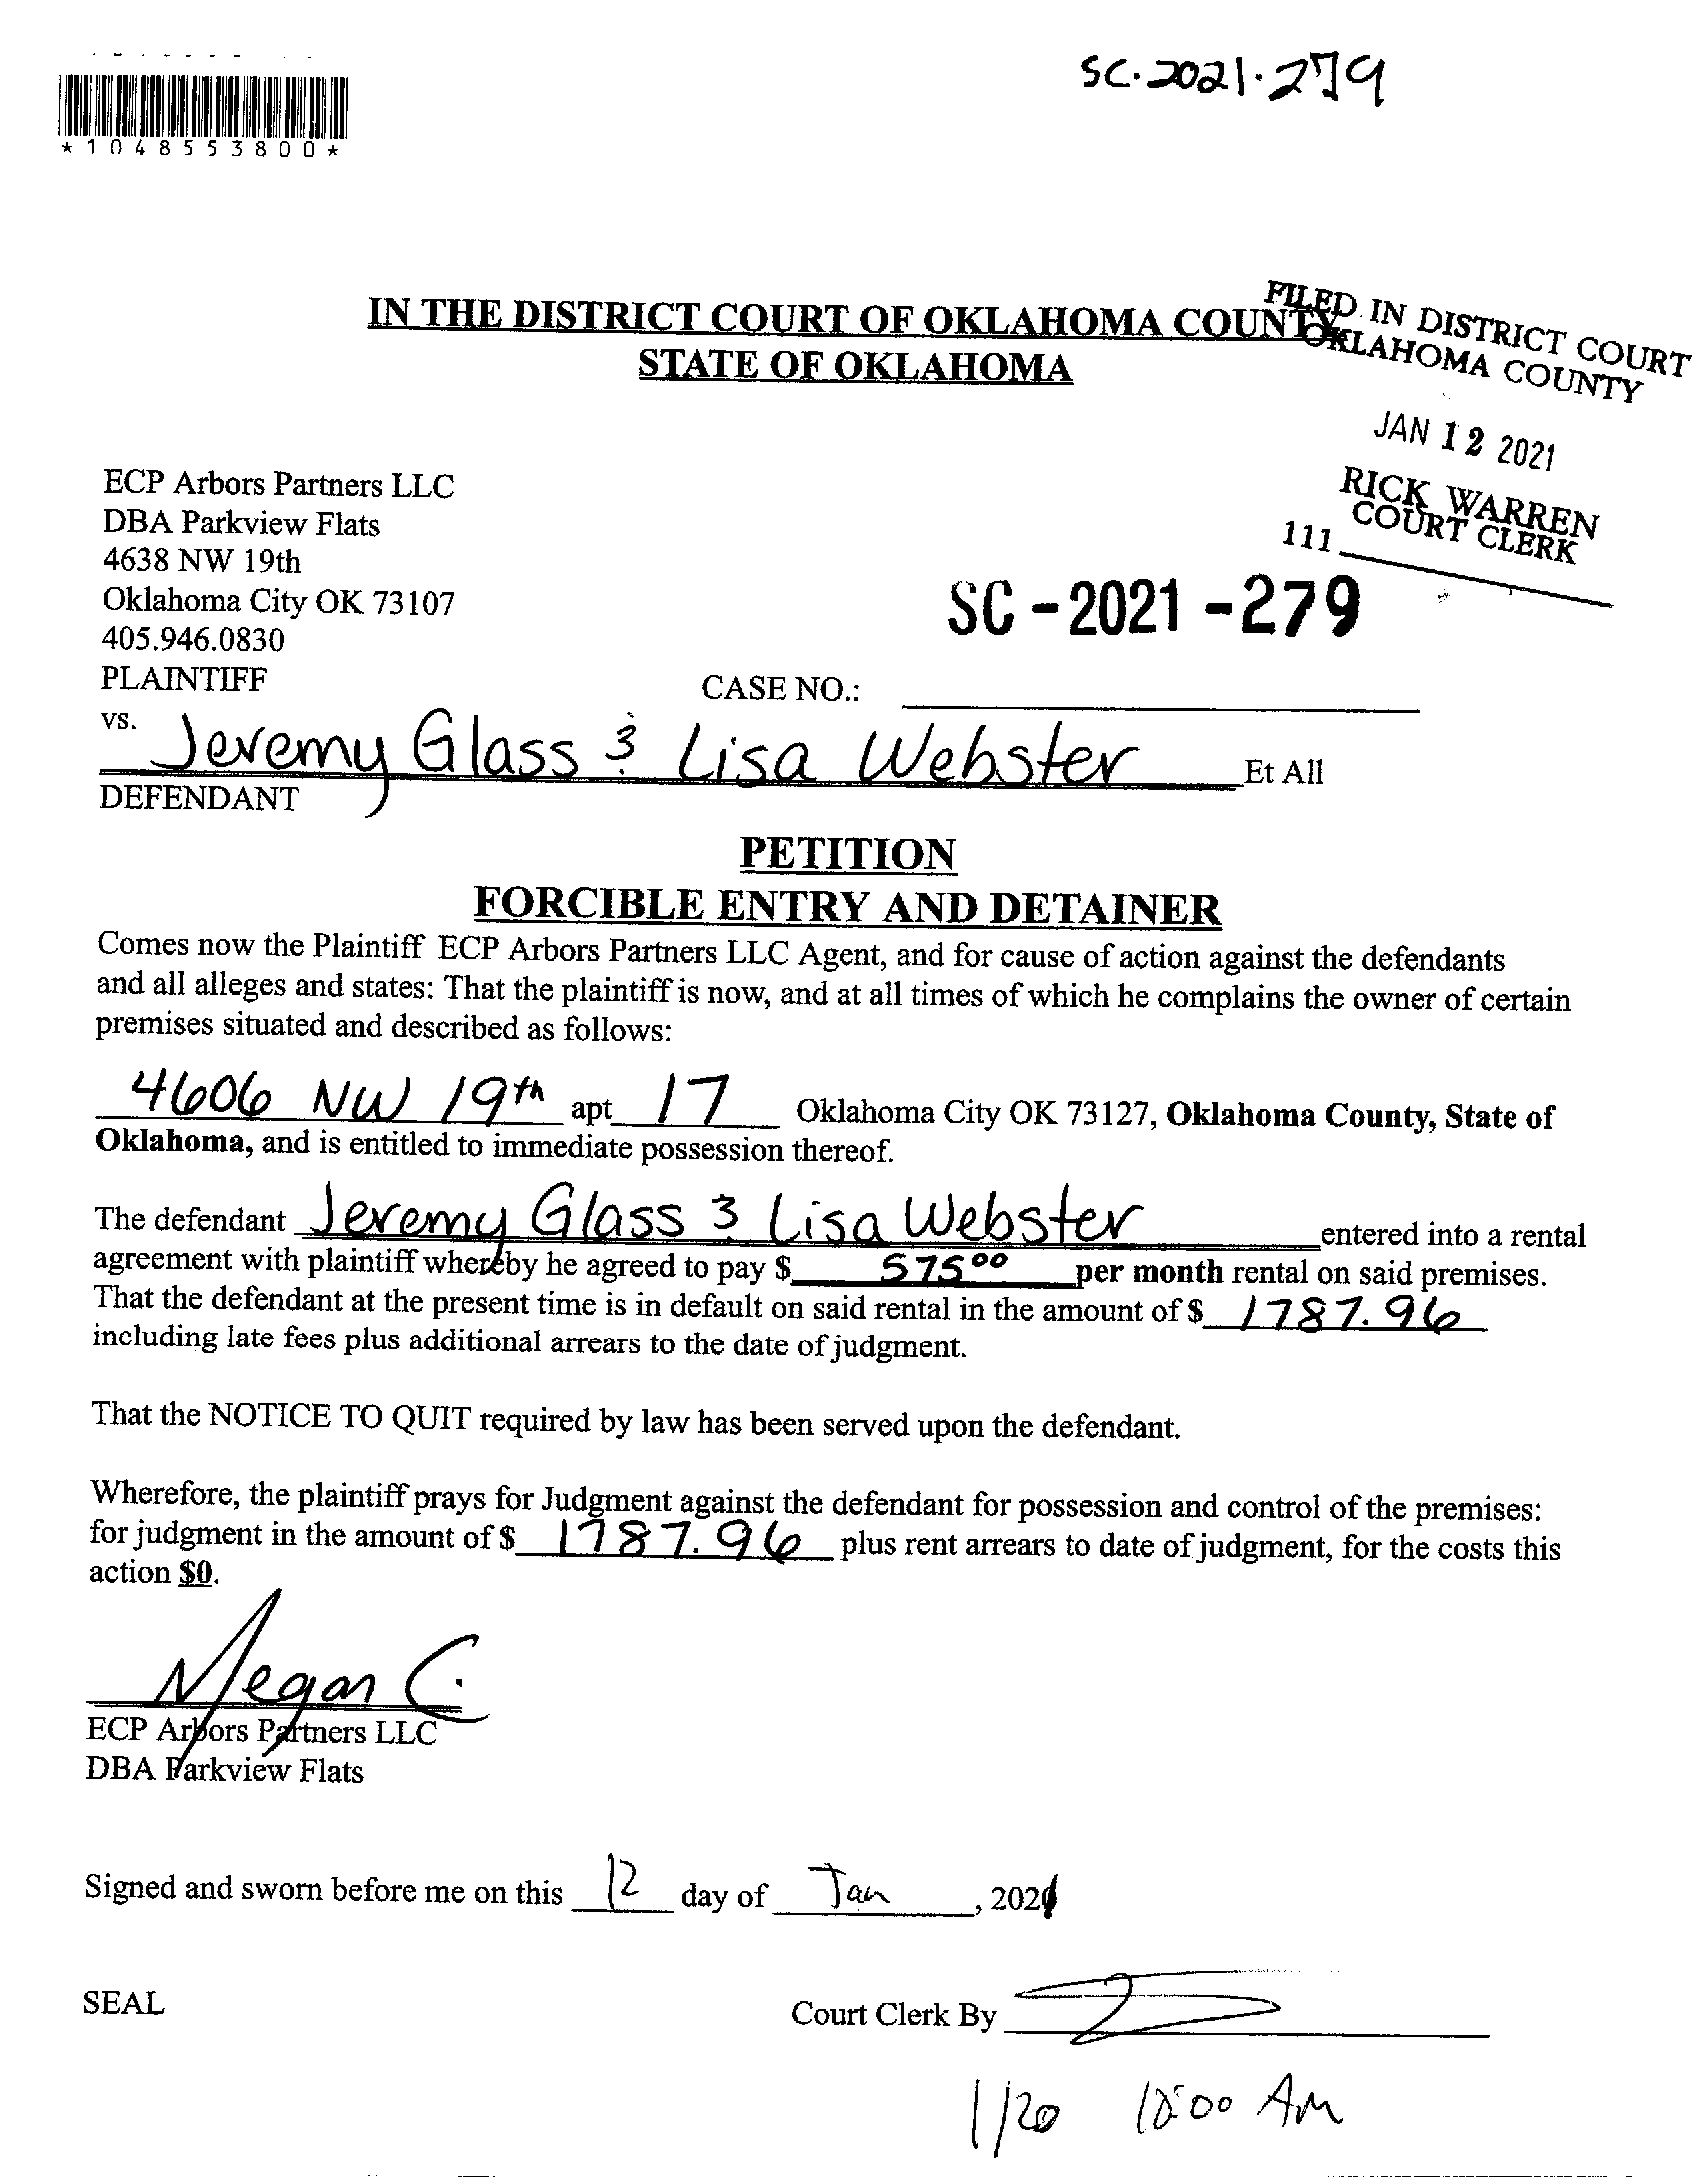 SC.2021.279
*1048553800*
IN THE DISTRICT COURT OF OKLAHOMA COUNTY
STATE OF OKLAHOMA
FILED IN DISTRICT COURT
OKLAHOMA COUNTY
JAN 12 2021
RICK WARREN
COURT CLERK
111
ECP Arbors Partners LLC
DBA Parkview Flats
4638 NW 19th
Oklahoma City OK 73107
405.946.0830
PLAINTIFF
SC-2021-279
CASE NO.:
vs. Jeremy Glass & Lisa Webster Et All
DEFENDANT
PETITION
FORCIBLE ENTRY AND DETAINER
Comes now the Plaintiff ECP Arbors Partners LLC Agent, and for cause of action against the defendants
and all alleges and states: That the plaintiff is now, and at all times of which he complains the owner of certain
premises situated and described as follows:
4606 NW 19th apt 17 Oklahoma City OK 73127, Oklahoma County, State of
Oklahoma, and is entitled to immediate possession thereof.
The defendant Jeremy Glass & Lisa Webster entered into a rental
agreement with plaintiff whereby he agreed to pay $ 575.00 per month rental on said premises.
That the defendant at the present time is in default on said rental in the amount of $ 1787.96
including late fees plus additional arrears to the date of judgment.
That the NOTICE TO QUIT required by law has been served upon the defendant.
Wherefore, the plaintiff prays for Judgment against the defendant for possession and control of the premises:
for judgment in the amount of $ 1787.96 plus rent arrears to date of judgment, for the costs this
action $0.
Megan C.
ECP Arbors Partners LLC
DBA Parkview Flats
Signed and sworn before me on this 12 day of Jan, 2021
SEAL
Court Clerk By
1/20 10:00 AM